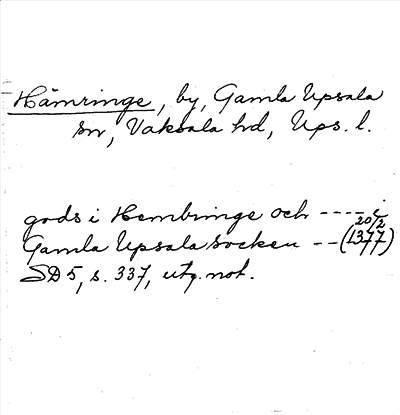 Hämringe, by, Gamla Upsala
sn, Vaksala hd, Ups. l.
gods i Hembringe och ---- i
Gamla Upsala socken -- (20/2 1377)
SD 5, s. 337, utg. not.